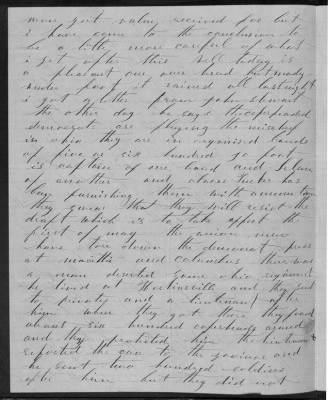 never got value received for but
i have come to the conclusion to
be a little more careful of what
i get after this well today is
a pleasant one over head but mudy
under foot it rained all last night
i got a letter from john stewart
the other day he says the copperheaded
democrats are playing the mischief
in ohio they are in organised bands
of five or six hundred
is captain of one band and
of another and has
been furnishing them with amunition
they swear that they will resist the
draft which is to take affect the
first of may the union men
have tore down the democrat press
at marietta and columbus there was
a man deserted some ohio regiment
he lived at and they sent
to privates and a lieutenant after
him when they got there they found
about six hundred coperheads armed
and they protected him the lieutenant
reported the case to the govinor and
he sent two hundred soldiers
after him but they did not